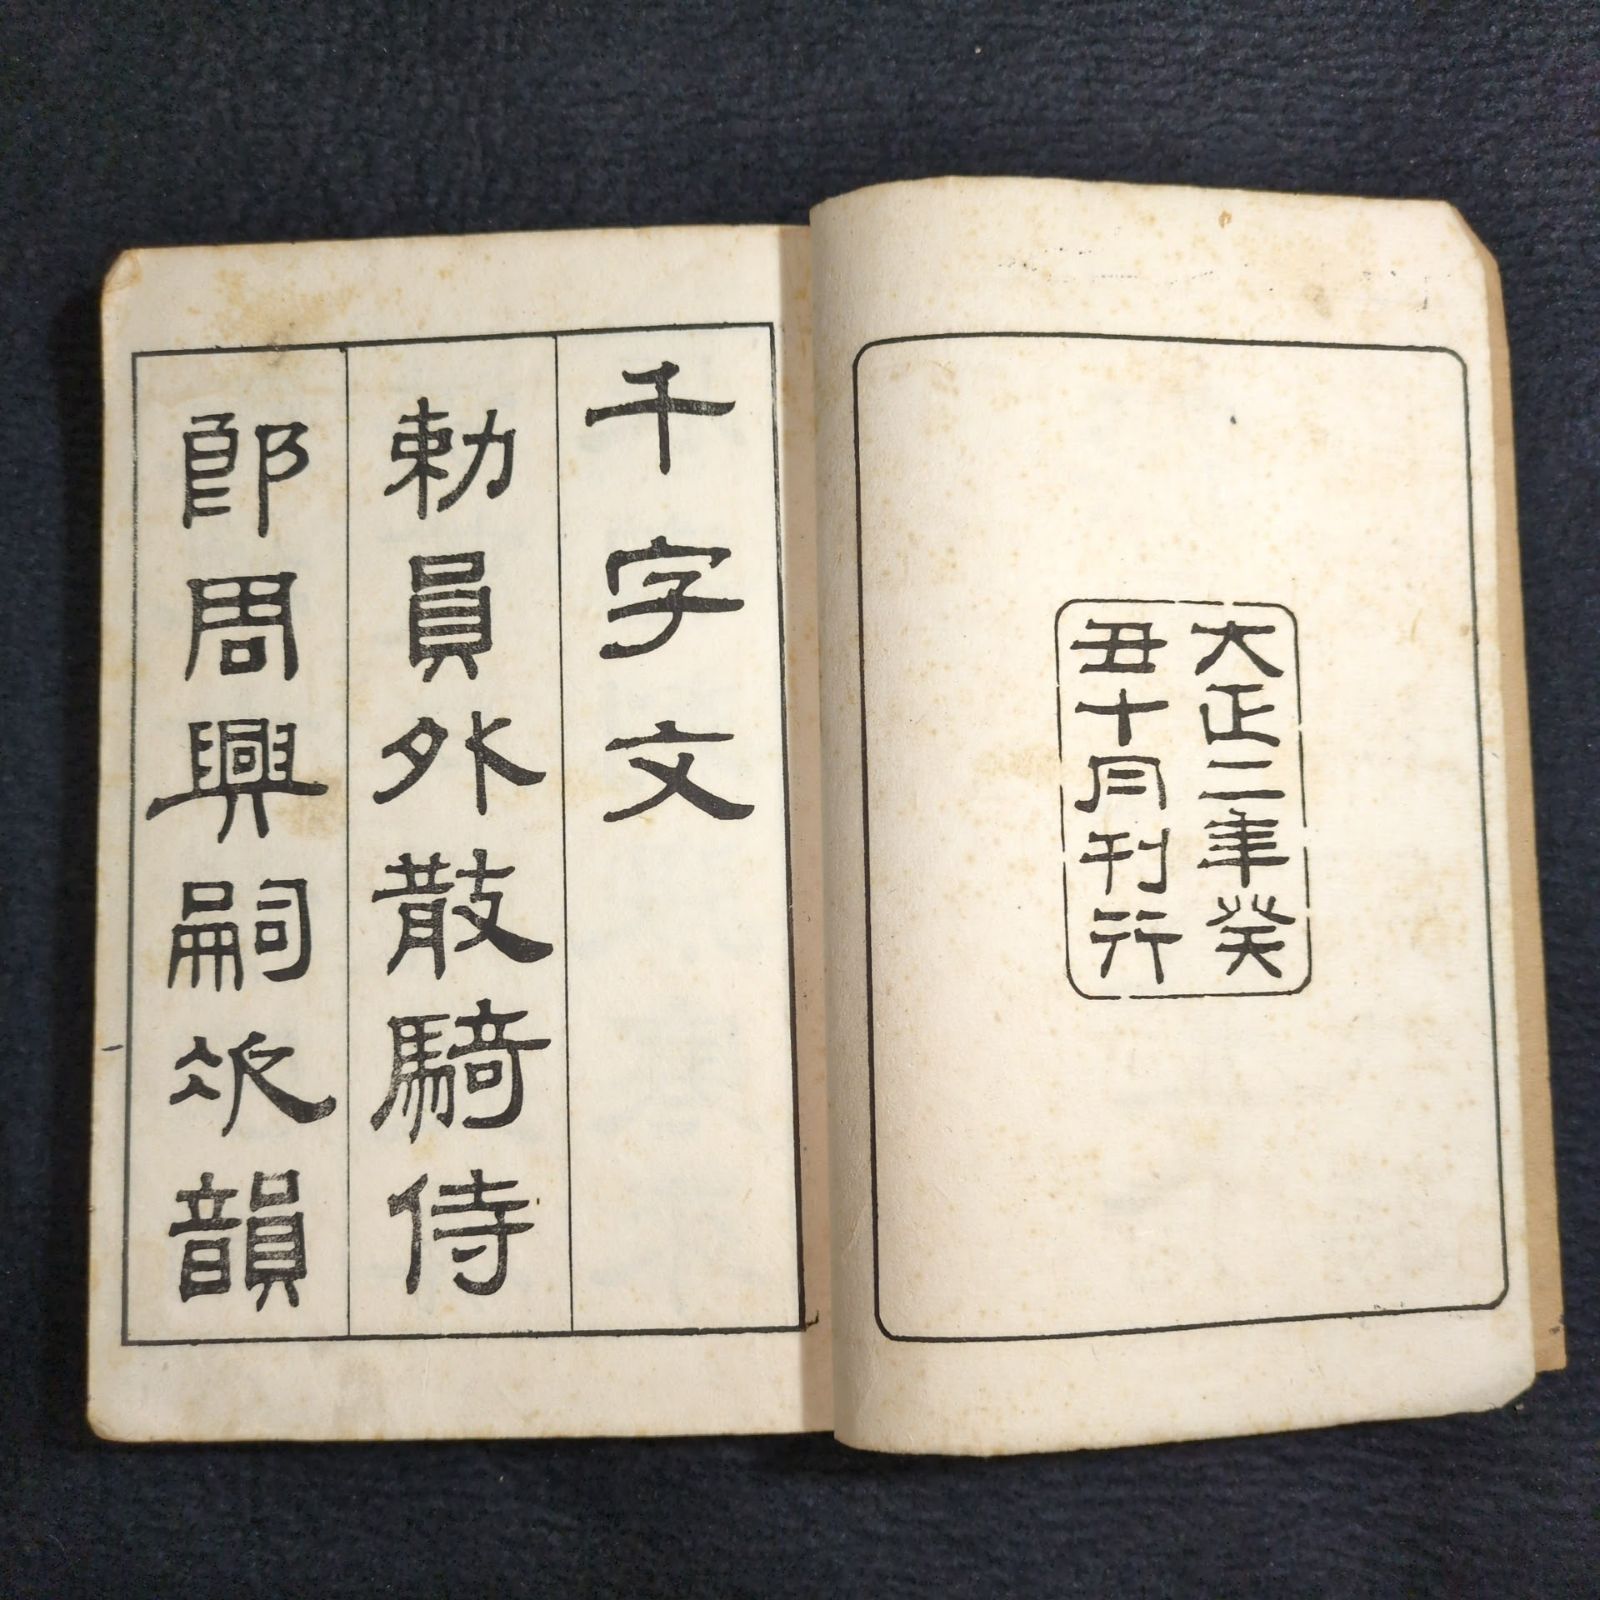 大正二年癸
丑十月刊行
千字文
勅員外散騎侍
郎周興嗣次韻